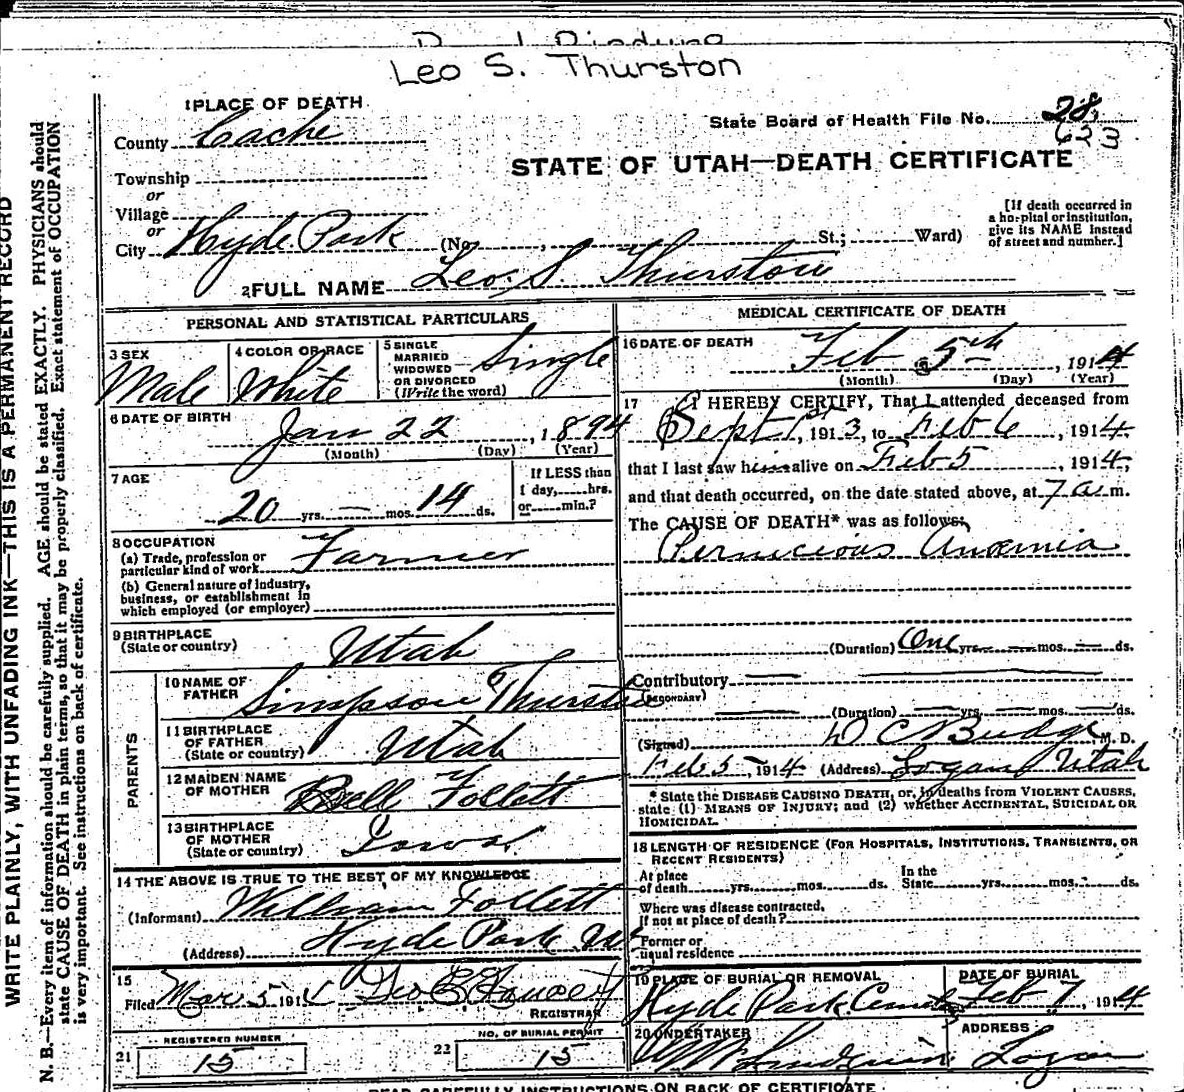 Leo S. Thurston
1 PLACE OF DEATH
County Cache
State Board of Health File No. 28,
623
STATE OF UTAH—DEATH CERTIFICATE
Township
or
Village
or
City Hyde Park (No. , St.; Ward)
[If death occurred in
a hospital or institution,
give its NAME instead
of street and number.]
2 FULL NAME Leo. S. Thurston
PERSONAL AND STATISTICAL PARTICULARS
3 SEX
Male
4 COLOR OR RACE
White
5 SINGLE
MARRIED
WIDOWED
OR DIVORCED
(Write the word)
Single
6 DATE OF BIRTH
Jan 22, 1894
(Month) (Day) (Year)
7 AGE
20 yrs. — mos. 14 ds.
If LESS than
1 day, hrs.
or min.?
8 OCCUPATION
(a) Trade, profession or
particular kind of work Farmer
(b) General nature of industry,
business, or establishment in
which employed (or employer)
9 BIRTHPLACE
(State or country) Utah
PARENTS
10 NAME OF
FATHER Simpson Thurston
11 BIRTHPLACE
OF FATHER
(State or country) Utah
12 MAIDEN NAME
OF MOTHER Bell Follett
13 BIRTHPLACE
OF MOTHER
(State or country) Iowa.
14 THE ABOVE IS TRUE TO THE BEST OF MY KNOWLEDGE
(Informant) William Follett
(Address) Hyde Park Ut
15
Filed Mar 5 191 Geo
REGISTRAR
21 REGISTERED NUMBER
15
22 NO. OF BURIAL PERMIT
15
MEDICAL CERTIFICATE OF DEATH
16 DATE OF DEATH
Feb 5th, 1914
(Month) (Day) (Year)
17 I HEREBY CERTIFY, That I attended deceased from
Sept 1st, 1913, to Feb 6, 1914.
that I last saw him alive on Feb 5, 1914,
and that death occurred, on the date stated above, at 7 a.m.
The CAUSE OF DEATH* was as follows:
Pernicious Anemia
(Duration) One yrs. — mos. — ds.
Contributory —
(SECONDARY)
(Duration) — yrs. — mos. — ds.
(Signed) D C Budge M. D.
Feb 5, 1914 (Address) Logan Utah
* State the DISEASE CAUSING DEATH, or, in deaths from VIOLENT CAUSES,
state (1) MEANS OF INJURY; and (2) whether ACCIDENTAL, SUICIDAL OR
HOMICIDAL.
18 LENGTH OF RESIDENCE (FOR HOSPITALS, INSTITUTIONS, TRANSIENTS, OR
RECENT RESIDENTS)
At place
of death yrs. mos. ds.
In the
State yrs. mos. ds.
Where was disease contracted,
if not at place of death?
Former or
usual residence
19 PLACE OF BURIAL OR REMOVAL
Hyde Park
DATE OF BURIAL
Feb 7, 1914
20 UNDERTAKER
ADDRESS
Logan
READ CAREFULLY INSTRUCTIONS ON BACK OF CERTIFICATE
WRITE PLAINLY, WITH UNFADING INK—THIS IS A PERMANENT RECORD
N. B.—Every item of information should be carefully supplied. AGE should be stated EXACTLY. PHYSICIANS should
state CAUSE OF DEATH in plain terms, so that it may be properly classified. Exact statement of OCCUPATION
is very important. See instructions on back of certificate.